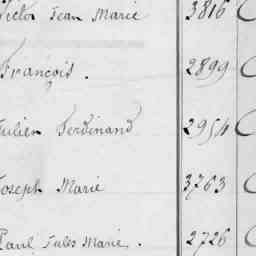 Victor Jean Marie 3816
François. 2899
Julien Ferdinand 2954
Joseph Marie 3763
Paul Jules Marie. 2726